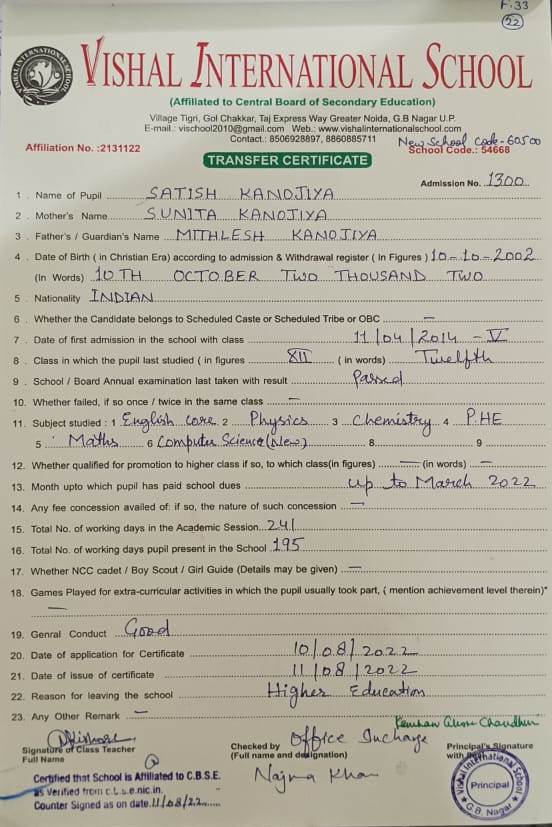 F-33
22
VISHAL INTERNATIONAL SCHOOL
(Affiliated to Central Board of Secondary Education)
Village Tigri, Gol Chakkar, Taj Express Way Greater Noida, G.B Nagar U.P.
E-mail.: vischool2010@gmail.com Web.: www.vishalinternationalschool.com
Contact.: 8506928897, 8860885711
New School Code - 60500
Affiliation No. :2131122 School Code.: 54668
TRANSFER CERTIFICATE
Admission No. 1300
1 . Name of Pupil SATISH KANOJIYA
2 . Mother's Name SUNITA KANOJIYA
3 . Father's / Guardian's Name MITHLESH KANOJIYA
4 . Date of Birth ( in Christian Era) according to admission & Withdrawal register ( In Figures ) 10-10-2002
(In Words) 10 TH OCTOBER TWO THOUSAND TWO
5 . Nationality INDIAN
6 . Whether the Candidate belongs to Scheduled Caste or Scheduled Tribe or OBC —
7 . Date of first admission in the school with class 11/04/2014 - V
8 . Class in which the pupil last studied ( in figures XII ( in words) Twelfth
9 . School / Board Annual examination last taken with result Passed
10. Whether failed, if so once / twice in the same class —
11. Subject studied : 1 English core 2 Physics 3 Chemistry 4 P.HE
5 Maths 6 Computer Science (New) 8 9
12. Whether qualified for promotion to higher class if so, to which class(in figures) — (in words) —
13. Month upto which pupil has paid school dues up to March 2022
14. Any fee concession availed of: if so, the nature of such concession —
15. Total No. of working days in the Academic Session 241
16. Total No. of working days pupil present in the School 195
17. Whether NCC cadet / Boy Scout / Girl Guide (Details may be given) —
18. Games Played for extra-curricular activities in which the pupil usually took part, ( mention achievement level therein)"
—
19. Genral Conduct Good
20. Date of application for Certificate 10/08/2022
21. Date of issue of certificate 11/08/2022
22. Reason for leaving the school Higher Education
23. Any Other Remark —
Signature of Class Teacher
Full Name
Checked by Office Incharge
(Full name and designation)
Najma Khan
Principal's Signature
with
Certified that School is Affiliated to C.B.S.E.
as Verified from c.b.s.e.nic.in.
Counter Signed as on date 11/08/22
Vishal International School
Principal
G.B. Nagar